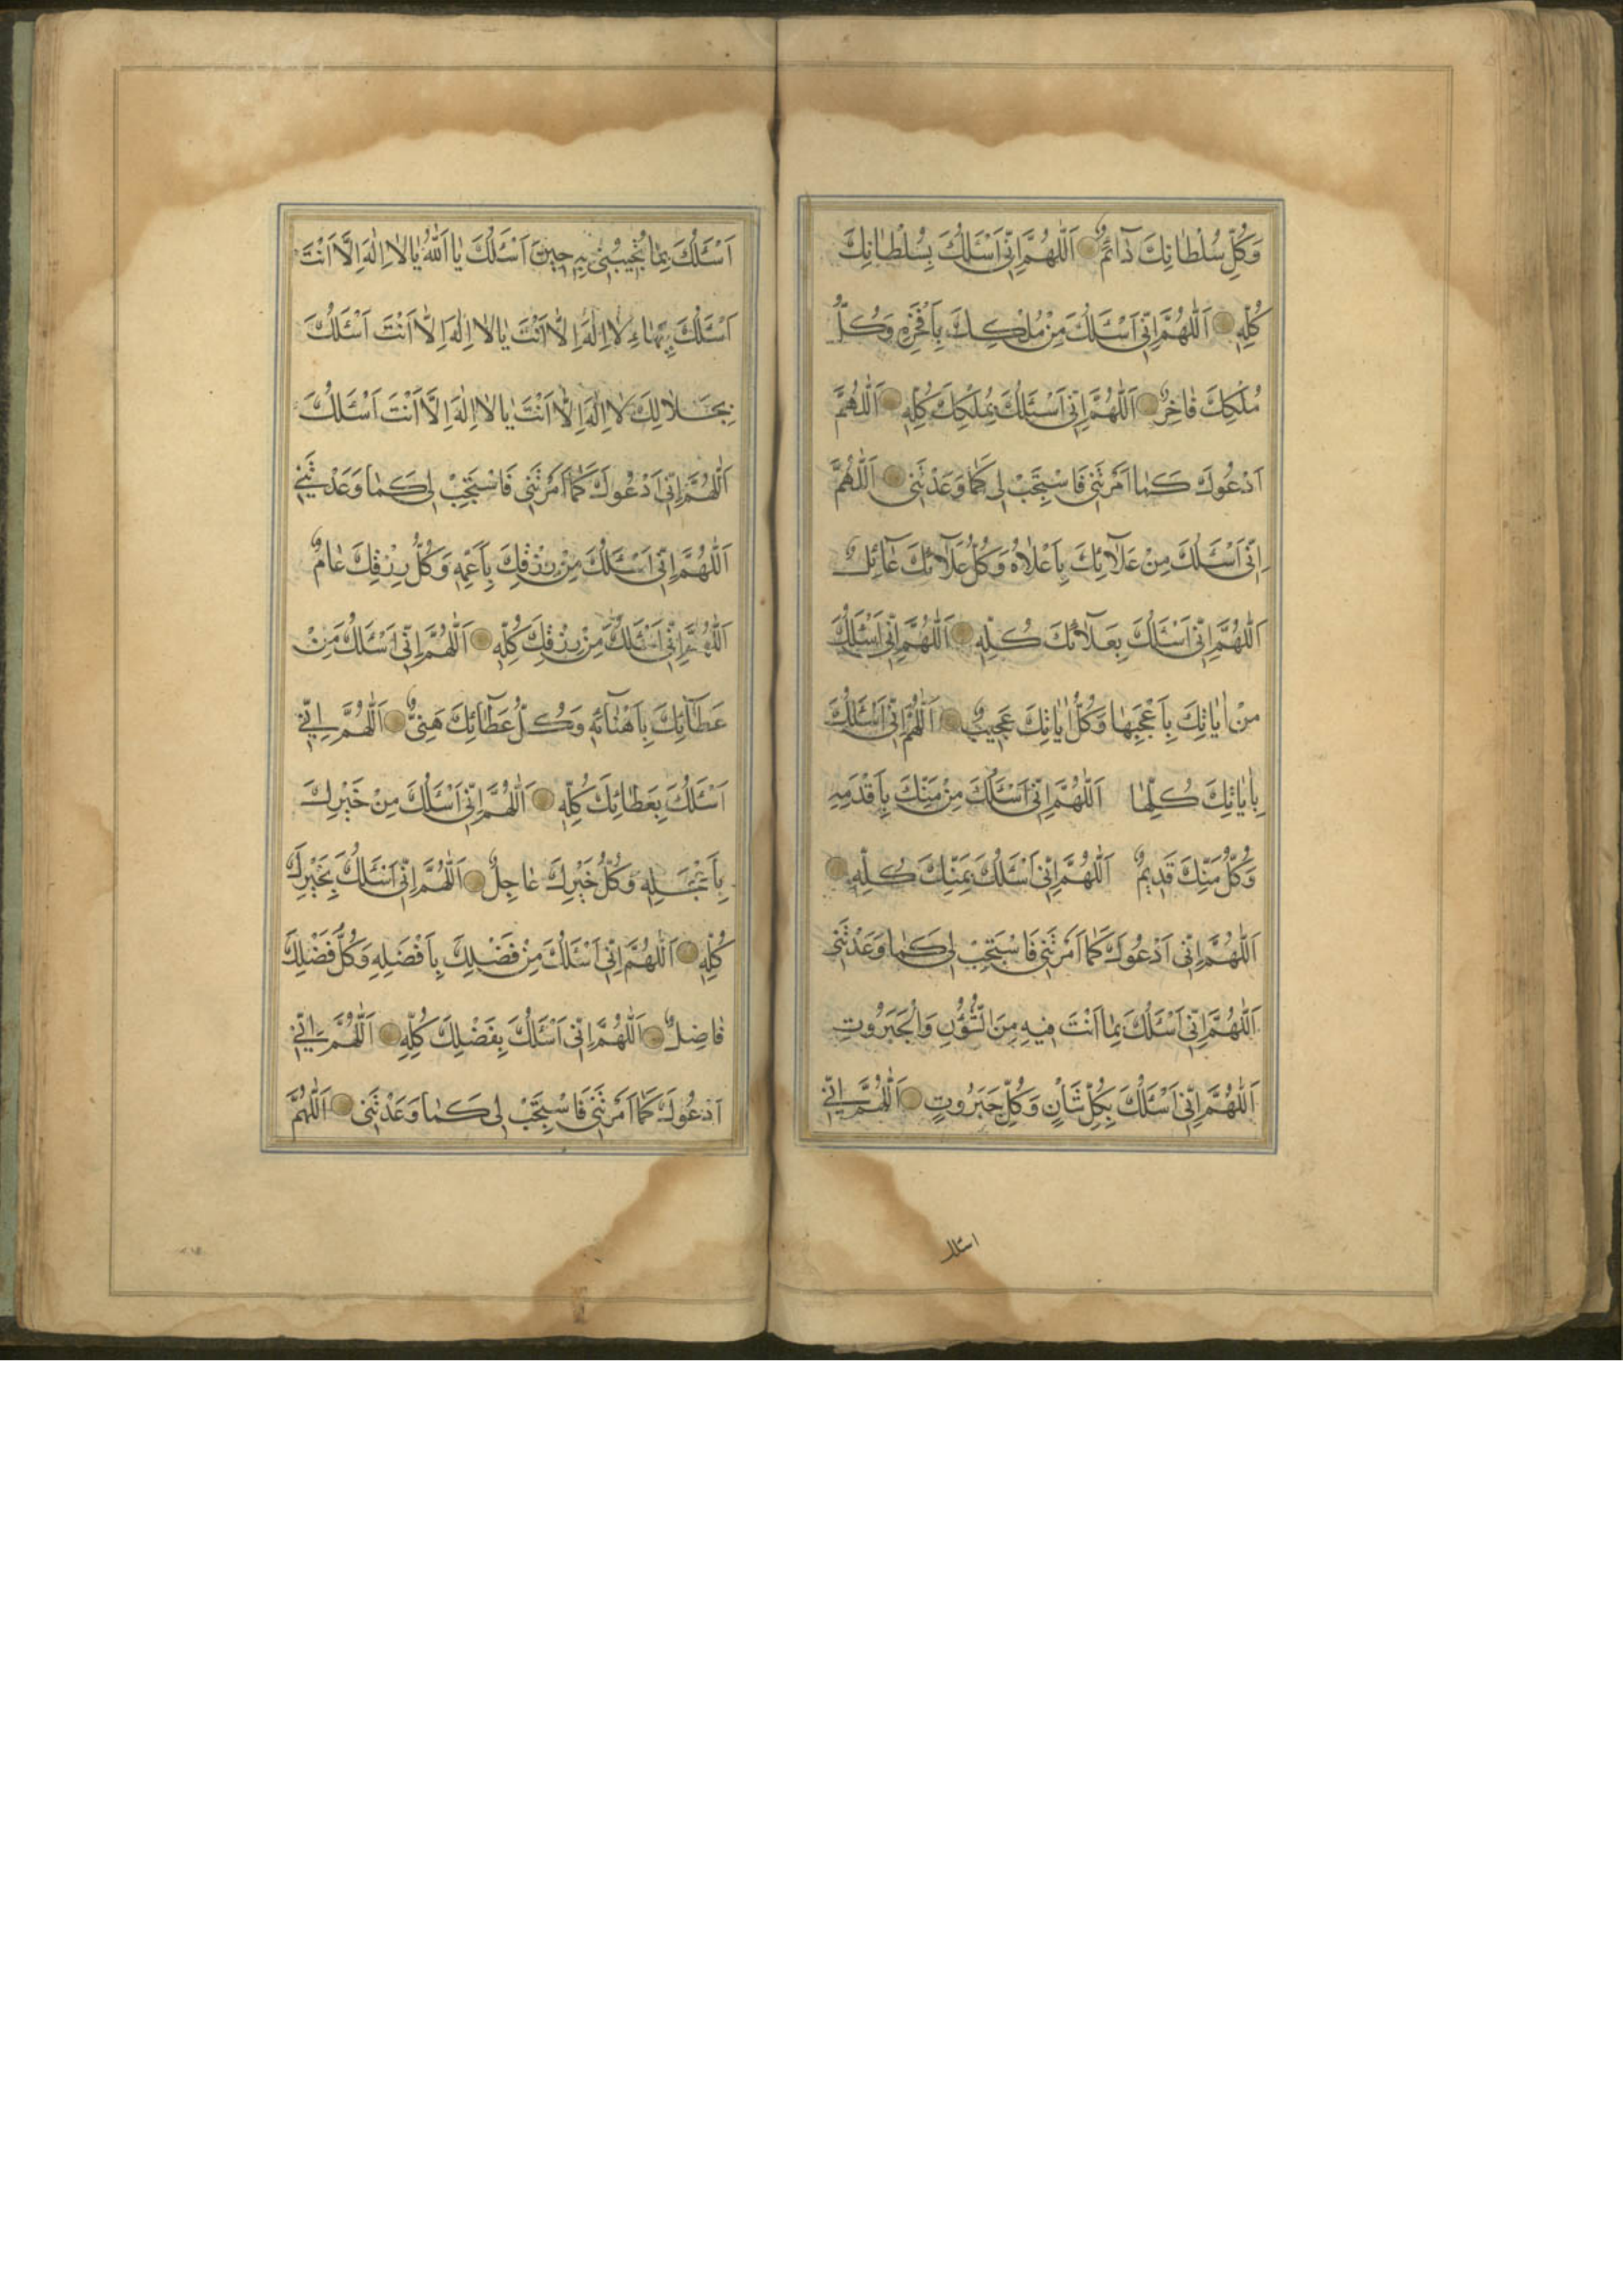 وَكُلِّ سُلْطَانِكَ دَآئِمٌ اَللّٰهُمَّ اِنّٖى اَسْئَلُكَ بِسُلْطَانِكَ
كُلِّهٖ اَللّٰهُمَّ اِنّٖى اَسْئَلُكَ مِنْ مُلْكِكَ بِاَفْخَرِهٖ وَكُلُّ
مُلْكِكَ فَاخِرٌ اَللّٰهُمَّ اِنّٖى اَسْئَلُكَ بِمُلْكِكَ كُلِّهٖ اَللّٰهُمَّ
اَدْعُوكَ كَمَا اَمَرْتَنٖى فَاسْتَجِبْ لٖى كَمَا وَعَدْتَنٖى اَللّٰهُمَّ
اِنّٖى اَسْئَلُكَ مِنْ عَلَآئِكَ بِاَعْلَاهُ وَكُلُّ عَلَآئِكَ عَآئِلٌ
اَللّٰهُمَّ اِنّٖى اَسْئَلُكَ بِعَلَآئِكَ كُلِّهٖ اَللّٰهُمَّ اِنّٖى اَسْئَلُكَ
مِنْ اٰيَاتِكَ بِاَعْجَبِهَا وَكُلُّ اٰيَاتِكَ عَجٖيبٌ اَللّٰهُمَّ اِنّٖى اَسْئَلُكَ
بِاٰيَاتِكَ كُلِّهَا اَللّٰهُمَّ اِنّٖى اَسْئَلُكَ مِنْ مَنِّكَ بِاَقْدَمِهٖ
وَكُلُّ مَنِّكَ قَدٖيمٌ اَللّٰهُمَّ اِنّٖى اَسْئَلُكَ بِمَنِّكَ كُلِّهٖ
اَللّٰهُمَّ اِنّٖى اَدْعُوكَ كَمَا اَمَرْتَنٖى فَاسْتَجِبْ لٖى كَمَا وَعَدْتَنٖى
اَللّٰهُمَّ اِنّٖى اَسْئَلُكَ بِمَا اَنْتَ فٖيهِ مِنَ الشُّؤُنِ وَالْجَبَرُوتِ
اَللّٰهُمَّ اِنّٖى اَسْئَلُكَ بِكُلِّ شَاْنٍ وَكُلِّ جَبَرُوتٍ اَللّٰهُمَّ اِنّٖى
اسئلك
اَسْئَلُكَ بِمَا تُجٖيبُنٖى بِهٖ حٖينَ اَسْئَلُكَ يَا اَللّٰهُ يَا لَا اِلٰهَ اِلَّا اَنْتَ
اَسْئَلُكَ بِبَهَاءِ لَا اِلٰهَ اِلَّا اَنْتَ يَا لَا اِلٰهَ اِلَّا اَنْتَ اَسْئَلُكَ
بِجَلَالِكَ لَا اِلٰهَ اِلَّا اَنْتَ يَا لَا اِلٰهَ اِلَّا اَنْتَ اَسْئَلُكَ
اَللّٰهُمَّ اِنّٖى اَدْعُوكَ كَمَا اَمَرْتَنٖى فَاسْتَجِبْ لٖى كَمَا وَعَدْتَنٖى
اَللّٰهُمَّ اِنّٖى اَسْئَلُكَ مِنْ رِزْقِكَ بِاَعَمِّهٖ وَكُلُّ رِزْقِكَ عَامٌّ
اَللّٰهُمَّ اِنّٖى اَسْئَلُكَ مِنْ رِزْقِكَ كُلِّهٖ اَللّٰهُمَّ اِنّٖى اَسْئَلُكَ مِنْ
عَطَآئِكَ بِاَهْنَائِهٖ وَكُلُّ عَطَآئِكَ هَنٖئٌ اَللّٰهُمَّ اِنّٖى
اَسْئَلُكَ بِعَطَائِكَ كُلِّهٖ اَللّٰهُمَّ اِنّٖى اَسْئَلُكَ مِنْ خَيْرِكَ
بِاَعْجَلِهٖ وَكُلُّ خَيْرِكَ عَاجِلٌ اَللّٰهُمَّ اِنّٖى اَسْئَلُكَ بِخَيْرِكَ
كُلِّهٖ اَللّٰهُمَّ اِنّٖى اَسْئَلُكَ مِنْ فَضْلِكَ بِاَفْضَلِهٖ وَكُلُّ فَضْلِكَ
فَاضِلٌ اَللّٰهُمَّ اِنّٖى اَسْئَلُكَ بِفَضْلِكَ كُلِّهٖ اَللّٰهُمَّ اِنّٖى
اَدْعُوكَ كَمَا اَمَرْتَنٖى فَاسْتَجِبْ لٖى كَمَا وَعَدْتَنٖى اَللّٰهُمَّ